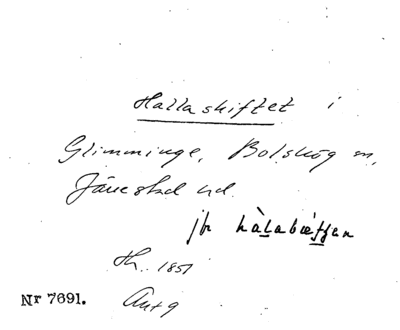 Hallaskiftet i
Glimminge, Bolshög sn,
Järrestad hd.
jfr hàlabæffjan
Th. 1851
Nr 7691. Ant 9